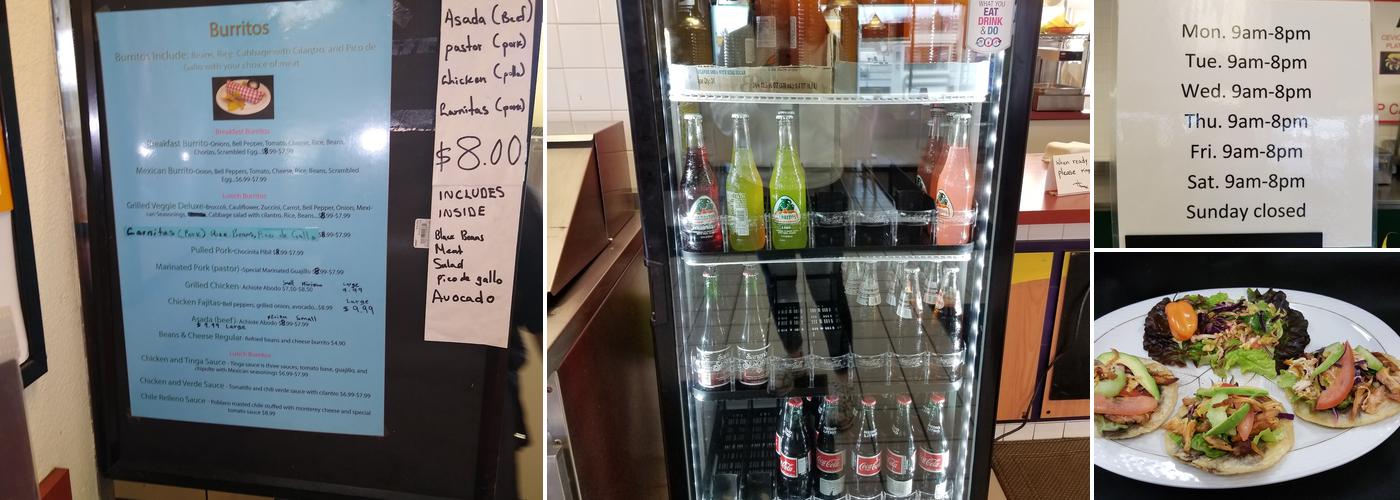 Burritos
Burritos Include: Beans, Rice, Cabbage with Cilantro, and Pico de
Gallo with your choice of meat
Breakfast Burritos
Breakfast Burrito-Onions, Bell Pepper, Tomato, Cheese, Rice, Beans,
Chorizo, Scrambled Egg...$8.99-$7.99
Mexican Burrito-Onion, Bell Peppers, Tomato, Cheese, Rice, Beans, Scrambled
Egg..$6.99-$7.99
Lunch Burritos
Grilled Veggie Deluxe-Broccoli, Cauliflower, Zuccini, Carrot, Bell Pepper, Onion, Mexi-
can Seasonings, Cabbage salad with cilantro, Rice, Beans...$8.99-$7.99
Carnitas (Pork) Rice, Beans, Pico de Gallo $8.99-$7.99
Pulled Pork-Chocinita Pibil $8.99-$7.99
Marinated Pork (pastor) -Special Marinated Guajillo $8.99-$7.99
Small Large
Grilled Chicken- Achiote Abodo $7.50-$8.50 9.99
Chicken Fajitas-Bell peppers, grilled onion, avocado...$8.99 Large $9.99
Small
Asada (beef)- Achiote Abodo $8.99-$7.99
$9.99 Large
Beans & Cheese Regular- Refried beans and cheese burrito $4.90
Lunch Burritos
Chicken and Tinga Sauce - Tinga sauce is three sauces, tomato base, guajillo, and
chipotle with Mexican seasonings $6.99-$7.99
Chicken and Verde Sauce - Tomatillo and chili verde sauce with cilantro $6.99-$7.99
Chile Relleno Sauce - Poblano roasted chile stuffed with monterey cheese and special
tomato sauce $8.99
Asada (Beef)
pastor (pork)
Chicken (pollo)
Carnitas (pork)
$8.00
INCLUDES
INSIDE
Black Beans
Meat
Salad
Pico de gallo
Avocado
WHAT YOU
EAT
DRINK
& DO
When ready
please ring
Coca-Cola
Coca-Cola
Coca-Cola
Coca-Cola
Mon. 9am-8pm
Tue. 9am-8pm
Wed. 9am-8pm
Thu. 9am-8pm
Fri. 9am-8pm
Sat. 9am-8pm
Sunday closed